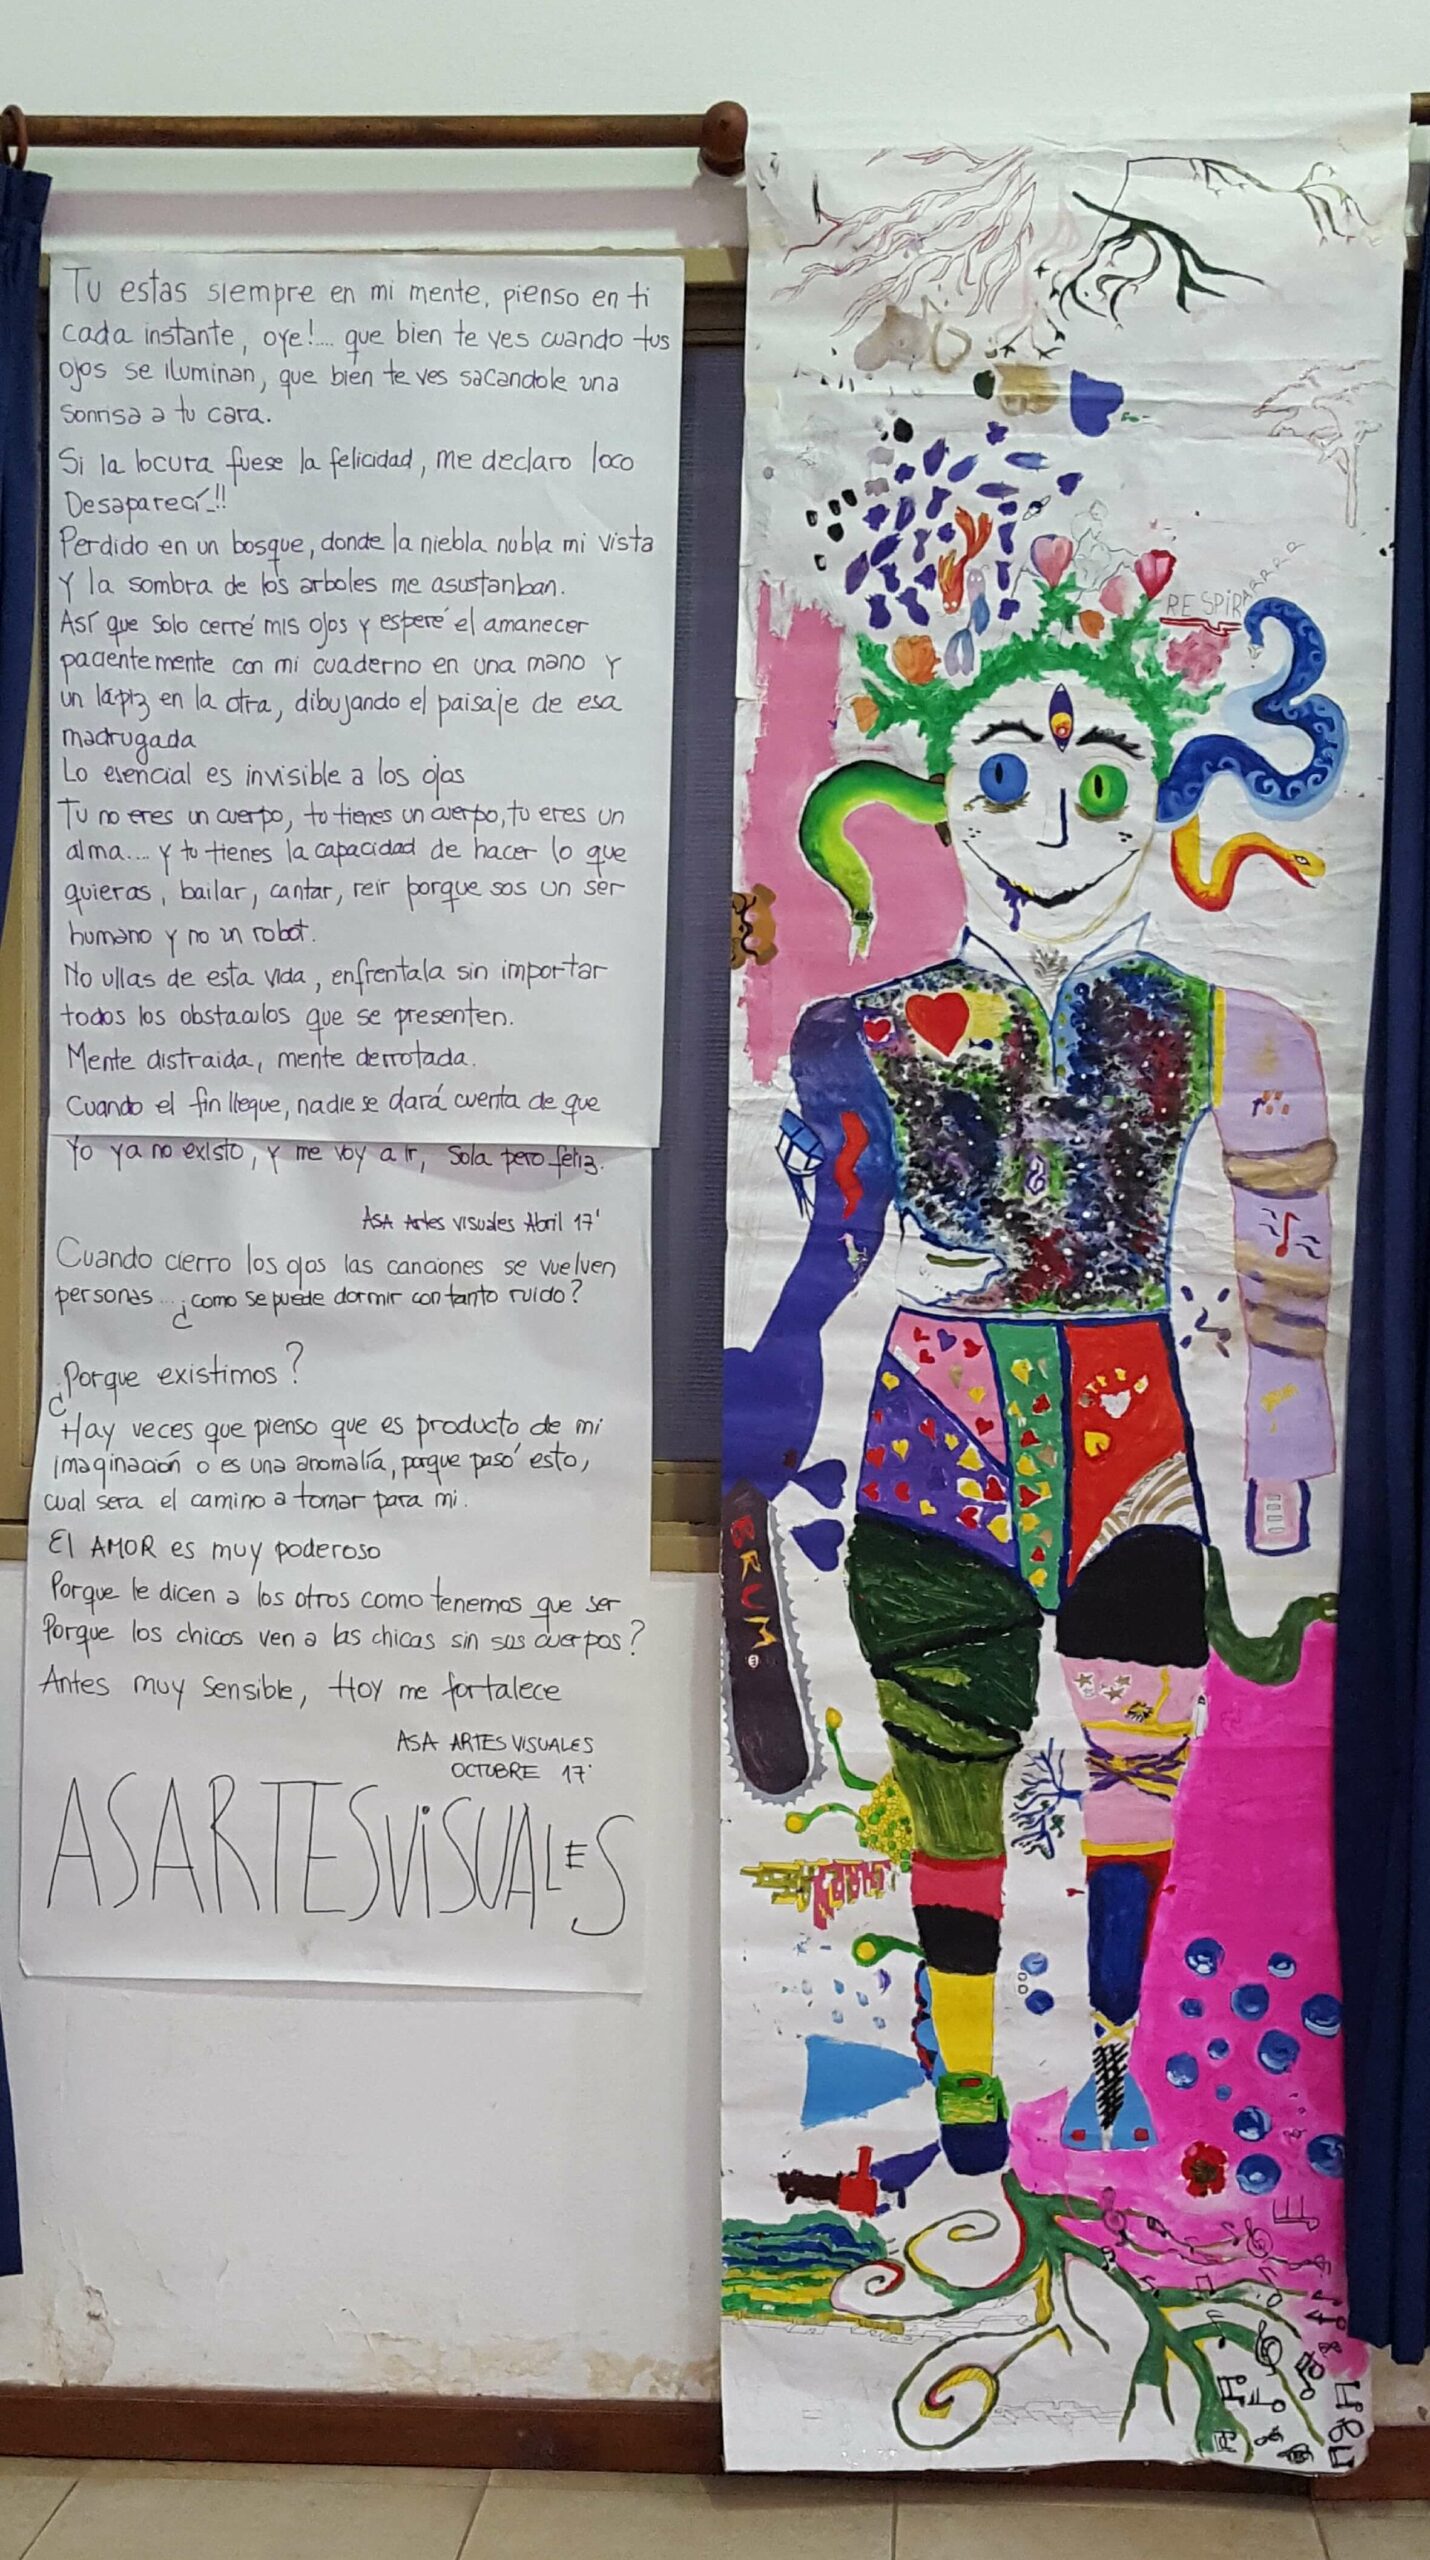 Tu estas siempre en mi mente, pienso en ti
cada instante, oye!.... que bien te ves cuando tus
ojos se iluminan, que bien te ves sacandole una
sonrisa a tu cara.
Si la locura fuese la felicidad, me declaro loco
Desaparecí_!!
Perdido en un bosque, donde la niebla nubla mi vista
Y la sombra de los arboles me asustanban.
Así que solo cerré mis ojos y esperé el amanecer
pacientemente con mi cuaderno en una mano y
un lápiz en la otra, dibujando el paisaje de esa
madrugada
Lo esencial es invisible a los ojos
Tu no eres un cuerpo, tu tienes un cuerpo, tu eres un
alma.... y tu tienes la capacidad de hacer lo que
quieras, bailar, cantar, reir porque sos un ser
humano y no un robot.
No ullas de esta vida, enfrentala sin importar
todos los obstaculos que se presenten.
Mente distraida, mente derrotada.
Cuando el fin llegue, nadie se dará cuenta de que
Yo ya no existo, y me voy a ir, sola pero feliz.
ASA Artes visuales Abril 17'
Cuando cierro los ojos las canciones se vuelven
personas... ¿como se puede dormir con tanto ruido?
¿Porque existimos?
Hay veces que pienso que es producto de mi
imaginación o es una anomalía, porque pasó esto,
cual sera el camino a tomar para mi.
El AMOR es muy poderoso
Porque le dicen a los otros como tenemos que ser
Porque los chicos ven a las chicas sin sus cuerpos?
Antes muy sensible, Hoy me fortalece
ASA ARTES VISUALES
OCTUBRE 17'
ASARTESViSUALES
RESPIRARRRRR
BRUM